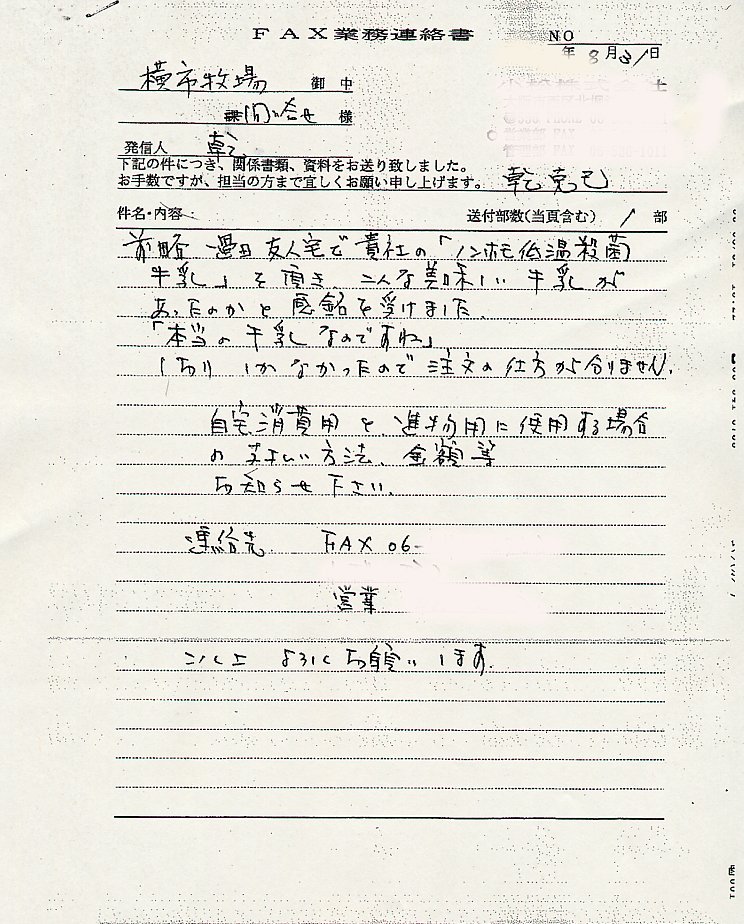 FAX業務連絡書
NO
年 8月31日
横市牧場 御中
課 問い合せ 様
発信人 乾
下記の件につき、関係書類、資料をお送り致しました。
お手数ですが、担当の方まで宜しくお願い申し上げます。
乾 克己
件名・内容 送付部数(当頁含む) 1 部
前略 過日 友人宅で貴社の「ノンホモ低温殺菌
牛乳」を頂き、こんな美味しい牛乳が
あったのかと感銘を受けました。
「本当の牛乳なのですね」
しかなかったので注文の仕方が分りません。
自宅消費用と、進物用に使用する場合
の支払い方法、金額等
お知らせ下さい。
連絡先 FAX 06-
営業
よろしくお願いします。